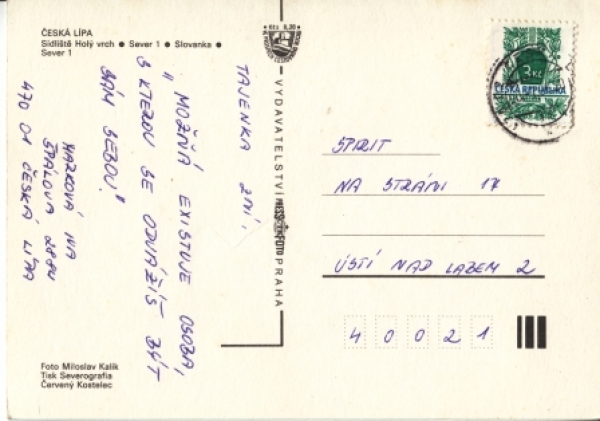 ČESKÁ LÍPA
Sídliště Holý vrch ● Sever 1 ● Slovanka ●
Sever 1
TAJENKA ZNÍ:
"MOŽNÁ EXISTUJE OSOBA,
S KTEROU SE ODVÁŽÍŠ BÝT
SÁM SEBOU."
IVA
ŠPÁLOVA
470 01 ČESKÁ LÍPA
Foto Miloslav Kalík
Tisk Severografia
Červený Kostelec
Kčs 0,30
VYDAVATELSTVÍ
PRAHA
3 Kč
ČESKÁ REPUBLIKA
SPIRIT
NA STRÁNI 17
ÚSTÍ NAD LABEM 2
40021